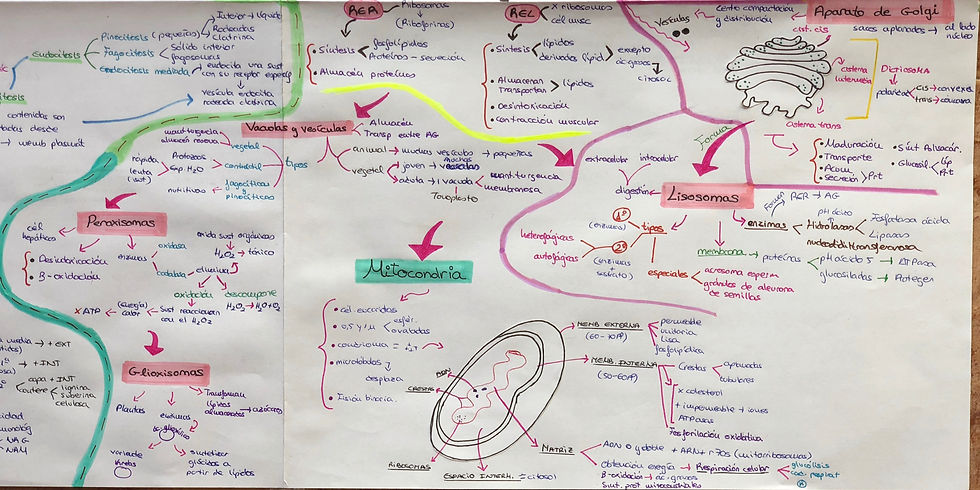 Interior → líquido
Rodeadas
clatrina
Pinocitosis (pequeñas)
Endocitosis
Fagocitosis
Sólido interior
fagosomas
Endocitosis mediada
endocita una sust
con su receptor específ
vesícula endocita
rodeada clatrina
contenidas son
desde
→ memb plasmát
RER
Ribosomas
(Riboforinas)
• Síntesis
fosfolípidos
Proteínas → secreción
• Almacén proteínas
REL
x ribosomas
cél musc
• Síntesis
lípidos
derivados lípid
excepto
ác grasos
citosol
• Almacenan
Transportan
lípidos
• Desintoxicación
• Contracción muscular
Aparato de Golgi
Vesículas
Centro compactación
y distribución
sacos aplanados → al lado
núcleo
cist. cis
cisterna
intermedia
cisterna trans
DICTIOSOMA
polaridad
cis → convexa
trans → cóncava
Forma
• Maduración
• Transporte
• Acum
• Secreción
Prt
• Sínt Polisacár.
• Glucosil
Lip
Prt
Vacuolas y vesículas
Almacén
Transp entre AG
animal → muchas vesículas → pequeñas
vegetal
joven → muchas vacuolas
adulta → 1 vacuola
mant turgencia
membranosa
Tonoplasto
tipos
vegetal
mant turgencia
almacén reservas
contráctil
Protozoos
exp. H2O
rápida
lenta
fagocíticas y
pinocíticas
nutritivas
Peroxisomas
cél
hepáticas
• Desintoxicación
• B-oxidación
enzimas
oxidasa
oxida sust orgánicas
H2O2 → tóxico
catalasa
elimina
oxidación
descompone
H2O2 → H2O + O2
Sust reaccionan
con el H2O2
(energía)
calor
x ATP
Glioxisomas
Plantas
enzimas
glioxílico
Transforman
lípidos
almacenados → azúcares
variante
Krebs
sintetizar
glúcidos a
partir de lípidos
media → + EXT
→ + INT
capa + INT
lignina
suberina
celulosa
NAG
NAM
Lisosomas
extracelular
intracelular
digestión
tipos
1º
(enzimas)
2º
(enzimas
+
sustrato)
heterofágicas
autofágicas
especiales
acrosoma esperm
gránulos de aleurona
de semillas
enzimas
Forman
RER → AG
pH ácido
Hidrolasas
Fosfatasa ácida
Lipasas
membrana → proteínas
pH ácido 5 → ATPasa
glucosiladas → Proteger
Mitocondria
• cel eucariotas
• 0,5 y 1 µ
esfér.
ovaladas
• condrioma =
• microtúbulos
desplaza
• Fisión binaria
ADN
CRESTAS
RIBOSOMAS
ESPACIO INTERM. = citosol
MEMB EXTERNA
(60-40PP)
permeable
unitaria
lisa
fosfolipídica
MEMB. INTERNA
Crestas
aplanadas
tubulares
x colesterol
+ impermeable → iones
ATPasas
Fosforilación oxidativa
MATRIZ
ADN doble + ARN + r 70s (mitorribosomas)
Obtención energía → Respiración celular
glucólisis
B-oxidación → ac. grasos
Sínt. prot mitocondriales